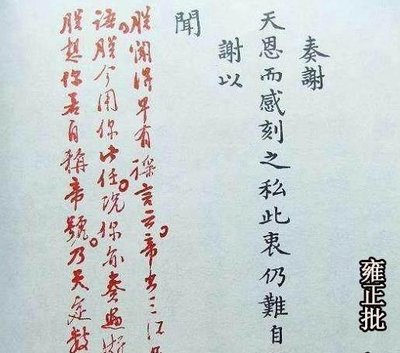 奏謝
天恩而感刻之私此衷仍難自
謝以
聞
朕聞得早有謡言云。帝出三江
語。朕今用你此任。況你亦奏過浙
朕想你若自稱帝號。乃天定數
雍正批